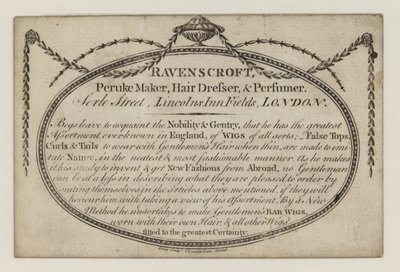 RAVENSCROFT,
Peruke Maker, Hair Dresser, & Perfumer,
Serle Street, Lincolns Inn Fields, LONDON.
Begs leave to acquaint the Nobility & Gentry, that he has the greatest
Assortment ever known in England, of WIGS of all sorts; False Tops,
Curls & Tails to wear with Gentlemen's Hair when thin, are made to imi-
tate Nature, in the neatest & most fashionable manner. As he makes
it his study to invent & get New Fashions from Abroad, no Gentleman
can be at a loss in describing what they are pleased to order by
suiting themselves in the articles above mentioned, if they will
honour him with taking a view of his Assortment. By a New
Method he undertakes to make Gentlemen's BAR WIGS,
worn with their own Hair, & all other Wigs
fitted to the greatest Certainty.